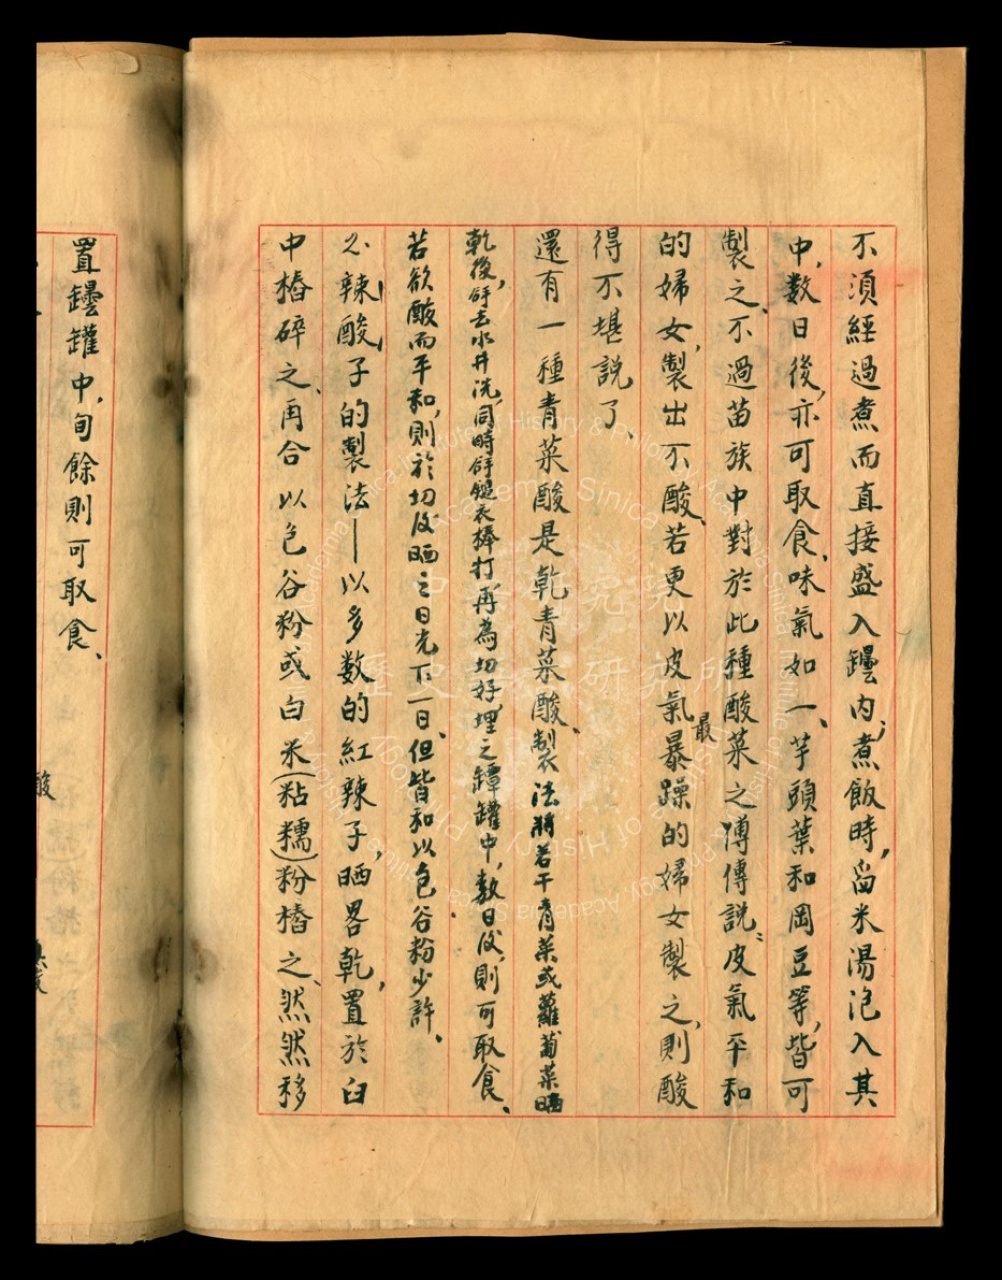 不須經過煮而直接盛入罎内；煮飯時，舀米湯泡入其
中，数日後，亦可取食、味氣如一、芋頭葉和岡豆等，皆可
製之、不過苗族中對於此種酸菜之傅傳説：皮氣平和
的婦女，製出不酸、若更以皮氣最暴躁的婦女製之，則酸
得不堪説了、
還有一種青菜酸是乾青菜酸、製法將若干青菜或蘿蔔菜晒
乾後，仔去水井洗，同時仔鎚衣棒打，再為切好，埋之罈罐中，数日後，則可取食、
若欲酸而平和，則於切後晒之日光下一日、但皆和以包谷粉少許、
2. 辣酸子的製法——以多数的紅辣子，晒畧乾，置於臼
中樁碎之、再合以包谷粉或白米（粘糯）粉樁之、然然移
置罎罐中，旬餘則可取食、
酸